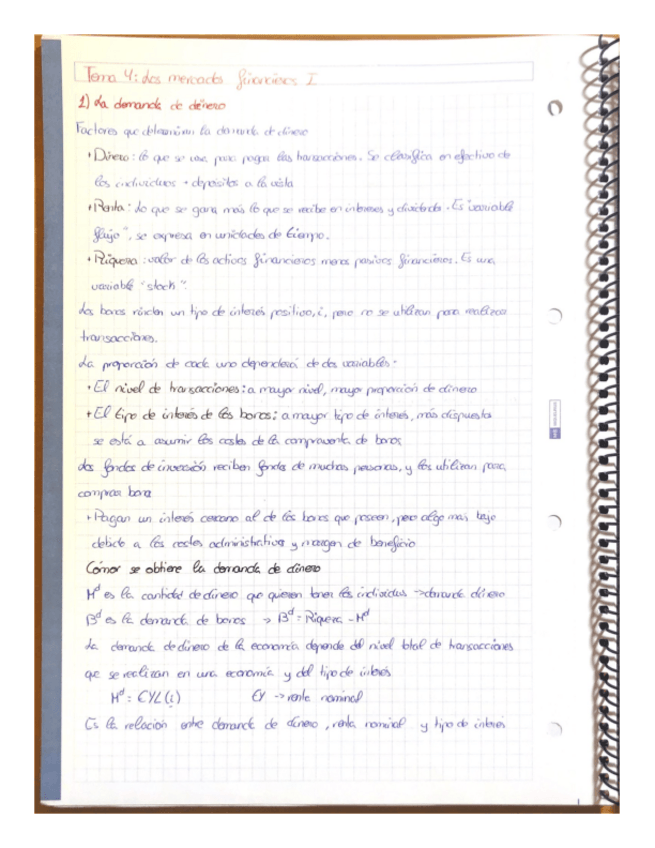 Tema 4: Los mercados financieros I
1) La demanda de dinero
Factores que determinan la demanda de dinero
• Dinero: lo que se usa para pagar las transacciones. Se clasifica en efectivo de
los individuos + depósitos a la vista
• Renta: Lo que se gana más lo que se recibe en intereses y dividendos. Es "variable
flujo", se expresa en unidades de tiempo.
• Riqueza: valor de los activos financieros menos pasivos financieros. Es una
variable "stock".
Los bonos rinden un tipo de interés positivo, i, pero no se utilizan para realizar
transacciones.
La proporción de cada uno dependerá de dos variables:
• El nivel de transacciones: a mayor nivel, mayor proporción de dinero
• El tipo de interés de los bonos: a mayor tipo de interés, más dispuesta
se está a asumir los costes de la compraventa de bonos
Los fondos de inversión reciben fondos de muchas personas, y los utilizan para
comprar bonos
• Pagan un interés cercano al de los bonos que poseen, pero algo más bajo
debido a los costes administrativos y margen de beneficio
Cómo se obtiene la demanda de dinero
Mᵈ es la cantidad de dinero que quieren tener los individuos → demanda dinero
Bᵈ es la demanda de bonos → Bᵈ = Riqueza - Mᵈ
La demanda de dinero de la economía depende del nivel total de transacciones
que se realizan en una economía y del tipo de interés
Mᵈ = €YL(i) €Y → renta nominal
Es la relación entre demanda de dinero, renta nominal y tipo de interés